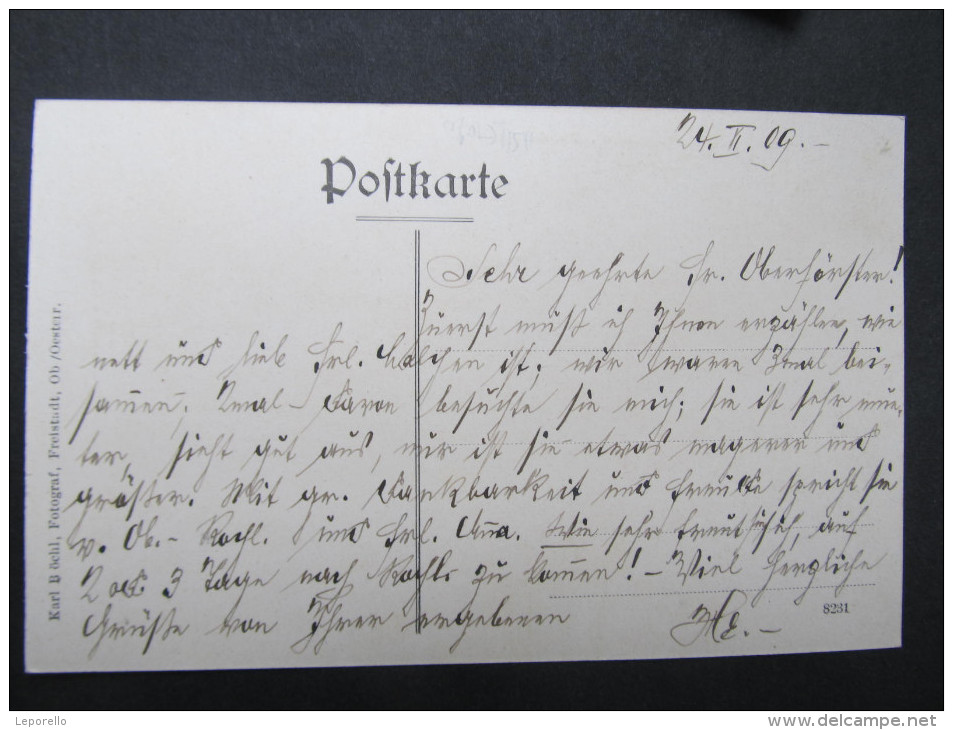 24. II. 09. –
Postkarte
Sehr geehrte Fr. Oberförster!
Zuerst muß ich Ihnen erzählen, wie
nett und lieb Frl. ist; wir waren 3mal bei-
sammen; 2mal – besuchte sie mich; sie ist sehr mun-
ter, sieht gut aus, nur ist sie etwas magerer und
größer. Mit gr. Dankbarkeit und Freude spricht sie
v. Ob.- und Frl. Anna. Wie sehr freut sie sich, auf
2 od. 3 Tage nach zu kommen! – Viel herzliche
Grüße von Ihrer ergebenen
8231
Karl Böchl, Fotograf, Freistadt, Ob./Oesterr.
Leporello
www.delcampe.net